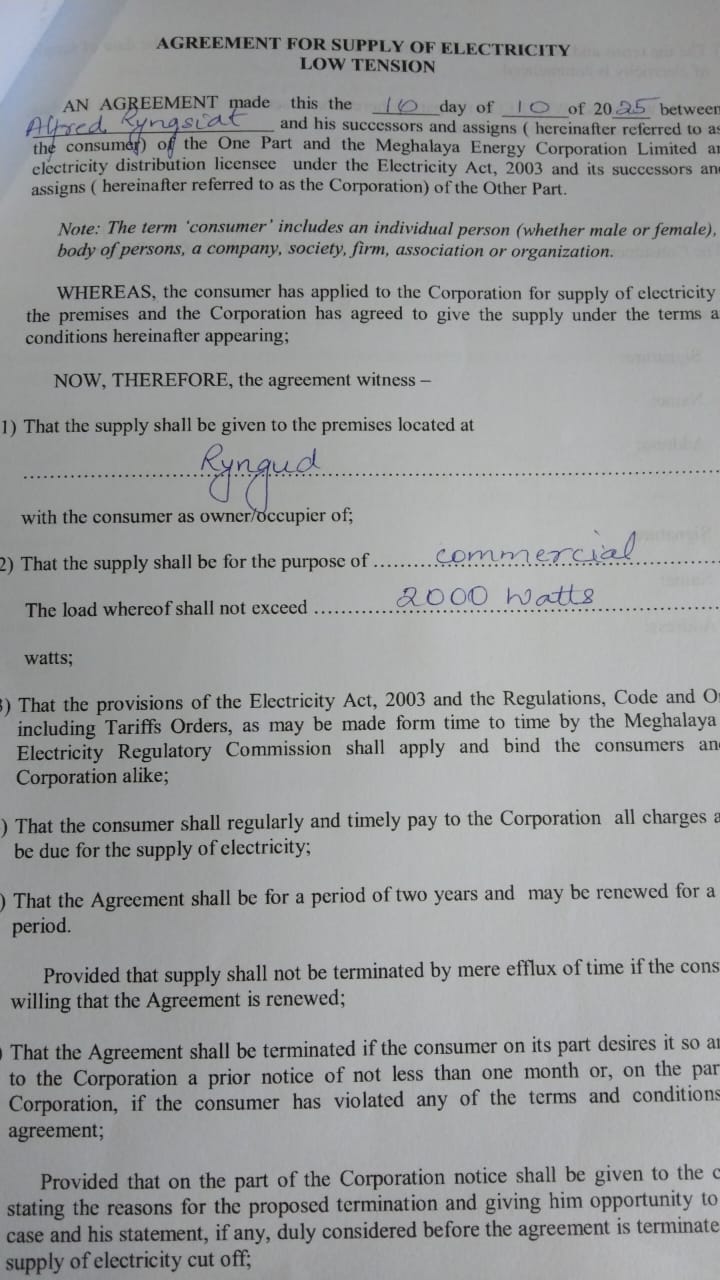 AGREEMENT FOR SUPPLY OF ELECTRICITY
LOW TENSION
AN AGREEMENT made this the 10 day of 10 of 2025 between
Alfred Ryngsiat and his successors and assigns ( hereinafter referred to as
the consumer) of the One Part and the Meghalaya Energy Corporation Limited
electricity distribution licensee under the Electricity Act, 2003 and its successors
assigns ( hereinafter referred to as the Corporation) of the Other Part.
Note: The term ‘consumer’ includes an individual person (whether male or female),
body of persons, a company, society, firm, association or organization.
WHEREAS, the consumer has applied to the Corporation for supply of electricity
the premises and the Corporation has agreed to give the supply under the terms
conditions hereinafter appearing;
NOW, THEREFORE, the agreement witness –
1) That the supply shall be given to the premises located at
Ryngud
with the consumer as owner/occupier of;
2) That the supply shall be for the purpose of ........commercial
The load whereof shall not exceed ............2000 Watts
watts;
3) That the provisions of the Electricity Act, 2003 and the Regulations, Code and
including Tariffs Orders, as may be made form time to time by the Meghalaya
Electricity Regulatory Commission shall apply and bind the consumers
Corporation alike;
) That the consumer shall regularly and timely pay to the Corporation all charges
be due for the supply of electricity;
) That the Agreement shall be for a period of two years and may be renewed for a
period.
Provided that supply shall not be terminated by mere efflux of time if the
willing that the Agreement is renewed;
) That the Agreement shall be terminated if the consumer on its part desires it so
to the Corporation a prior notice of not less than one month or, on the
Corporation, if the consumer has violated any of the terms and conditions
agreement;
Provided that on the part of the Corporation notice shall be given to the
stating the reasons for the proposed termination and giving him opportunity to
case and his statement, if any, duly considered before the agreement is
supply of electricity cut off;